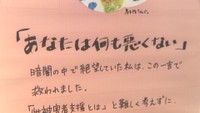 「あなたは何も悪くない」
暗闇の中で絶望していた私は、この一言で
救われました。
「性被害者支援とは」と難しく考えずに、